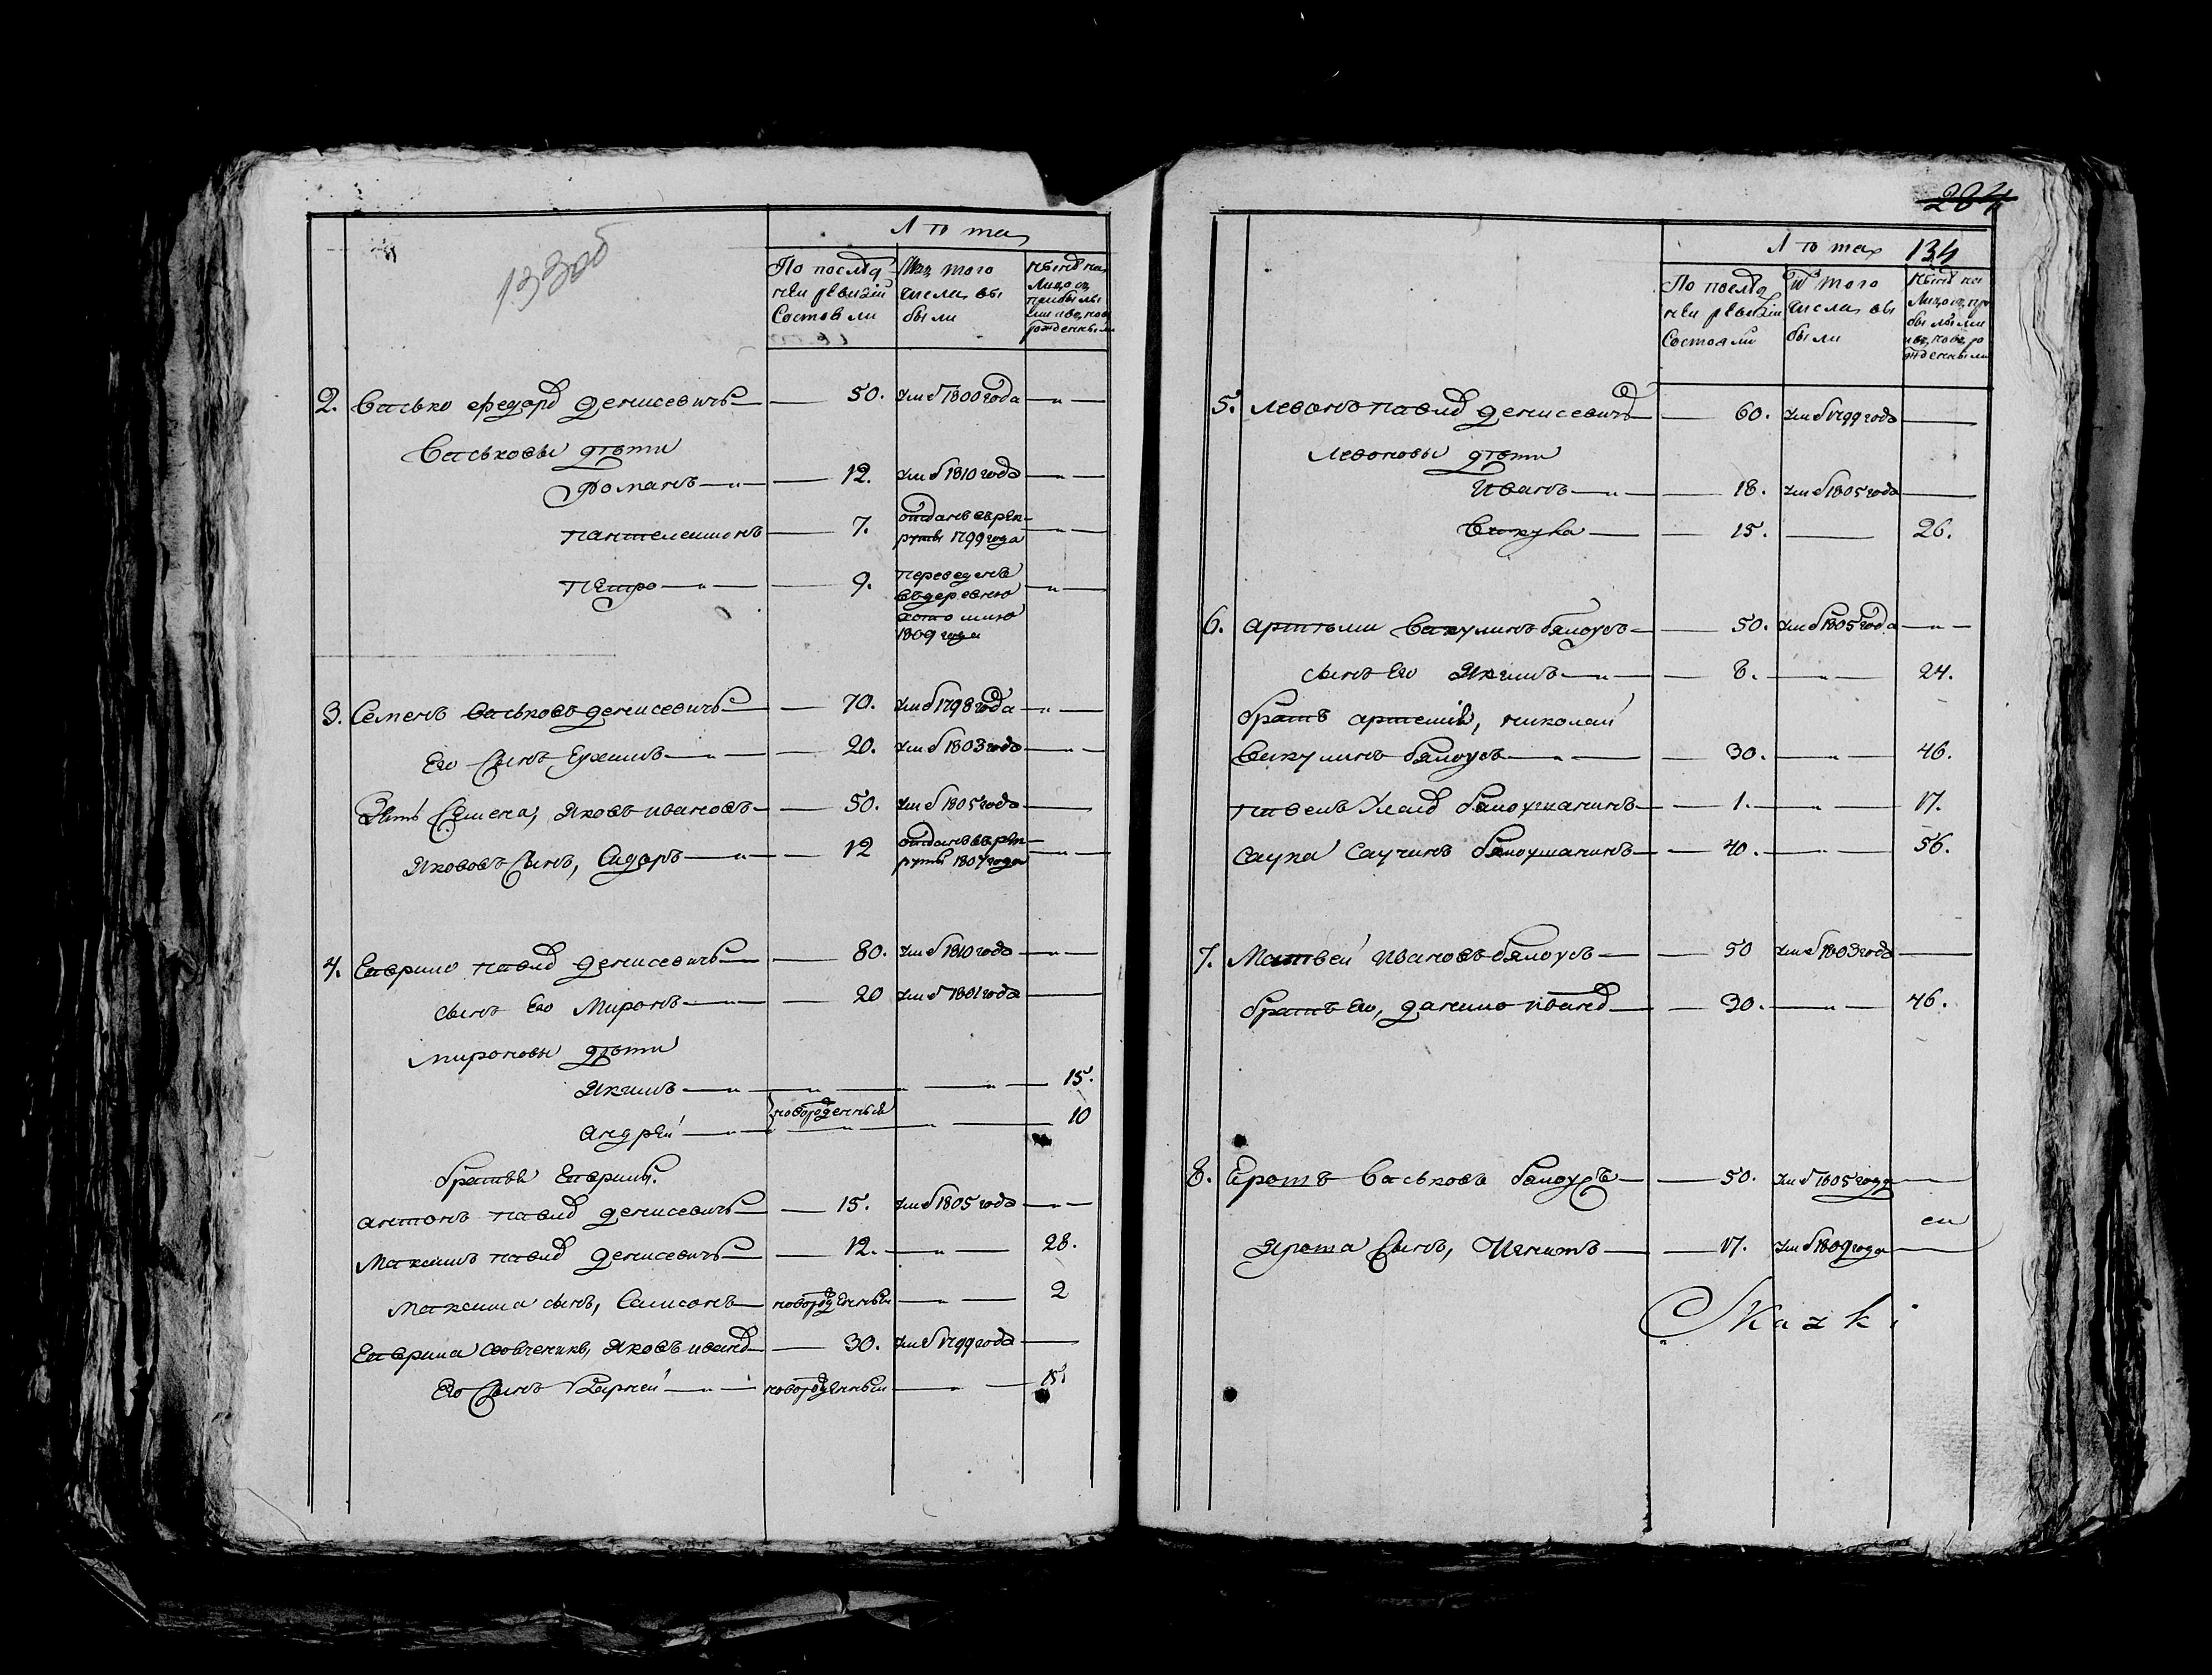 133об
Лѣта
По послѣд
ней ревизiи
Состояли
Изъ того
числа вы
были
Нынѣ на
Лицо съ
прибылы
ми и въ, ново
рожденными
2. Васько Федоръ Денисевичъ — 50. умеръ 1800 года — „ —
Васьковы дѣти
Романъ — „ — 12. умеръ 1810 года — „ —
Пантелеимонъ — 7. отданъ въ рек-
руты 1799 года — „ —
Петро — „ — 9. переведенъ
въ деревню
1809 года — „ —
3. Семенъ Васьковъ Денисевичъ — 70. умеръ 1798 года — „ —
Его Сынъ Ехимъ — „ — 20. умеръ 1803 года — „ —
Зять Семена, Яковъ Ивановъ — 50. умеръ 1805 года —
Якововъ Сынъ, Сидоръ — „ — 12 отданъ въ рек-
руты 1807 года — „ —
4. Гаврило Павлд Денисевичъ — 80. умеръ 1810 года — „ —
Сынъ Его Миронъ — „ — 20 умеръ 1801 года —
Мироновы дѣти
Якимъ — „ — „ — „ — 15.
Андрей — „ — новорожденный — „ — 10
братья Гаврилы.
Антонъ Павлд Денисевичъ — 15. умеръ 1805 года — „ —
Максимъ Павлд Денисевичъ — 12. — „ — 28.
Максима сынъ, Самсонъ — новорожденный — „ — 2
Гаврила Яковъ Иванд — 30. умеръ 1799 года —
Его Сынъ Карней — „ — новорожденный — „ — 15.
204
Лѣтах 134
По послѣд
ней ревизiи
Состояли
Изъ того
числа вы
были
Нынѣ на
Лицо съ при
былыми
и въ, ново ро
жденными
5. Левонъ Павлд Денисевичъ — 60. умеръ 1799 года —
Левоновы дѣти
Иванъ — „ — 18. умеръ 1805 года —
— 15. — 26.
6. Артемiи Вакулинъ бялоусъ — 50. умеръ 1805 года — „ —
Сынъ Его Якимъ — „ — 8. — „ — 24.
братъ Артемiя, Николай
Вакулинъ бялоусъ — „ — 30. — „ — 46.
Павелъ бялоушанинъ — 1. — „ — 17.
Саука Саучинъ бялоушанинъ — 40. — „ — 56.
7. Матвей Ивановъ бялоусъ — 50 умеръ 1803 года —
братъ Его, Данило Иванд — 30. — „ — 46.
8. Васьковъ бялоусъ — 50. умеръ 1805 года —
Сынъ, Игнатъ — 17. умеръ 1809 года —
Skazki